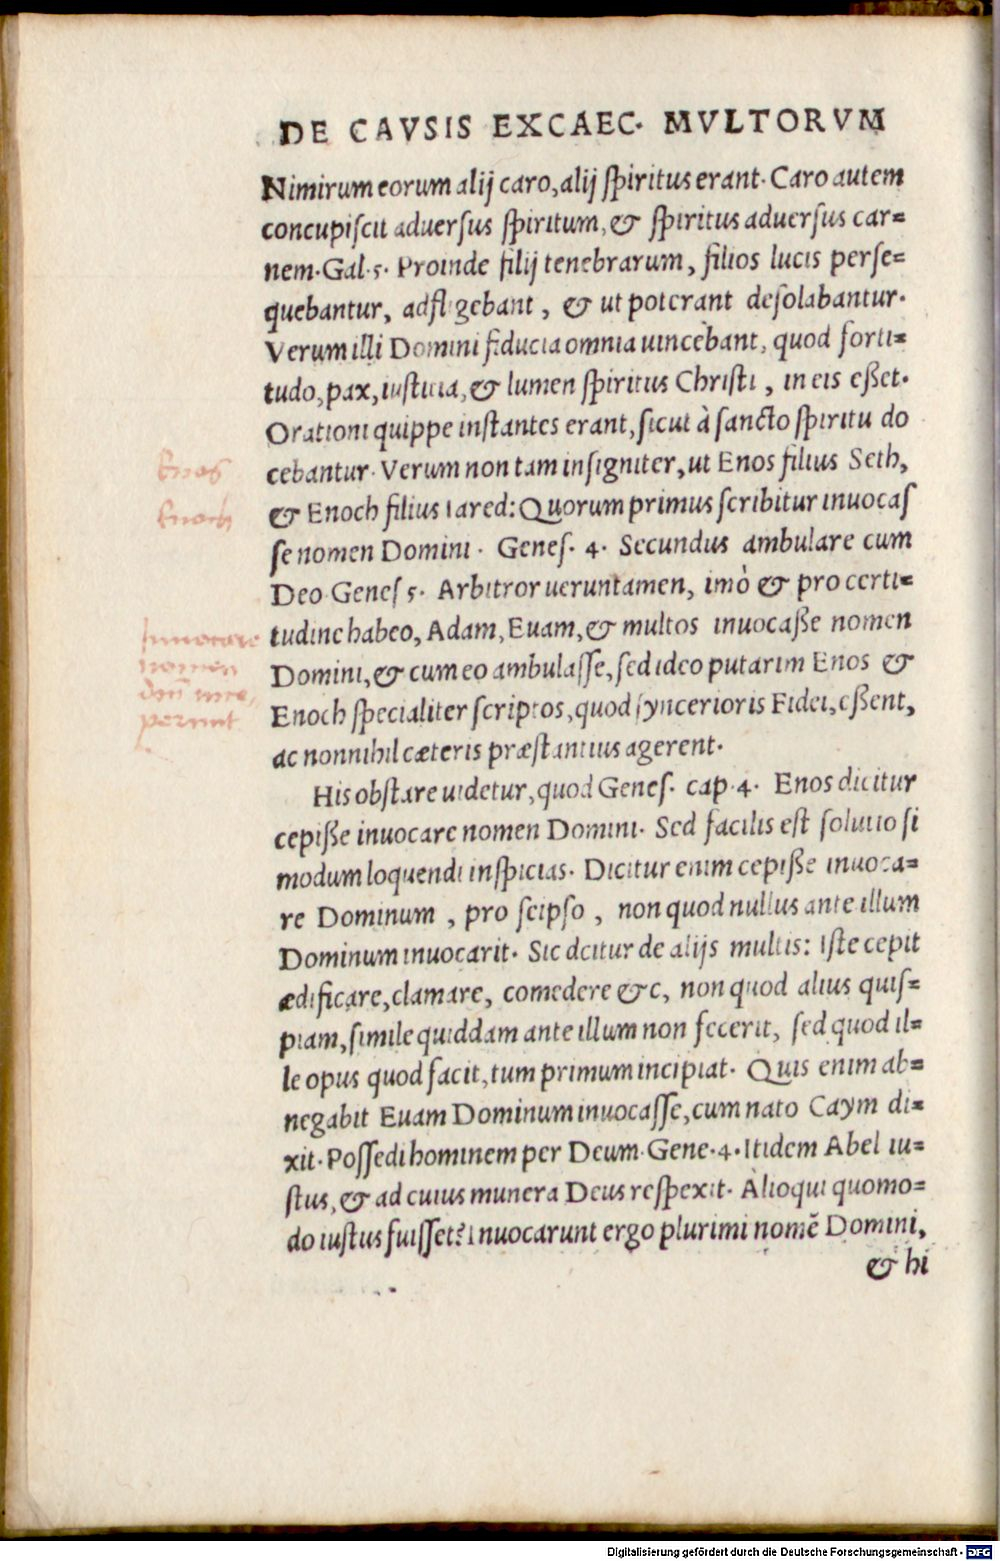 DE CAVSIS EXCAEC. MVLTORVM
Nimirum eorum alij caro, alij ſpiritus erant. Caro autem
concupiſcit aduerſus ſpiritum, & ſpiritus aduerſus car=
nem. Gal. 5. Proinde filij tenebrarum, filios lucis perſe=
quebantur, adfligebant, & ut poterant deſolabantur.
Verum illi Domini fiducia omnia uincebant, quod forti=
tudo, pax, iuſticia, & lumen ſpiritus Chriſti, in eis eßet.
Orationi quippe inſtantes erant, ſicut à ſancto ſpiritu do
cebantur. Verum non tam inſigniter, ut Enos filius Seth,
& Enoch filius Iared: Quorum primus ſcribitur inuocaſ
ſe nomen Domini. Geneſ. 4. Secundus ambulare cum
Deo Geneſ 5. Arbitror ueruntamen, imò & pro certi=
tudine habeo, Adam, Euam, & multos inuocaße nomen
Domini, & cum eo ambulaſſe, ſed ideo putarim Enos &
Enoch ſpecialiter ſcriptos, quod ſyncerioris Fidei, eßent,
ac nonnihil cæteris præſtantius agerent.
His obſtare uidetur, quod Geneſ. cap. 4. Enos dicitur
cepiße inuocare nomen Domini. Sed facilis eſt ſolutio ſi
modum loquendi inſpicias. Dicitur enim cepiße inuoca=
re Dominum, pro ſeipſo, non quod nullus ante illum
Dominum inuocarit. Sic dcitur de alijs multis: Iſte cepit
ædificare, clamare, comedere &c, non quod alius quiſ=
piam, ſimile quiddam ante illum non fecerit, ſed quod il=
le opus quod facit, tum primum incipiat. Quis enim ab=
negabit Euam Dominum inuocaſſe, cum nato Caym di=
xit. Poſſedi hominem per Deum. Gene. 4. Itidem Abel iu=
ſtus, & ad cuius munera Deus reſpexit. Alioqui quomo=
do iuſtus fuiſſet? Inuocarunt ergo plurimi nomẽ Domini,
& hi
Enos
Enoch
Inuocare
nomen
dñi
Digitalisierung gefördert durch die Deutsche Forschungsgemeinschaft - DFG